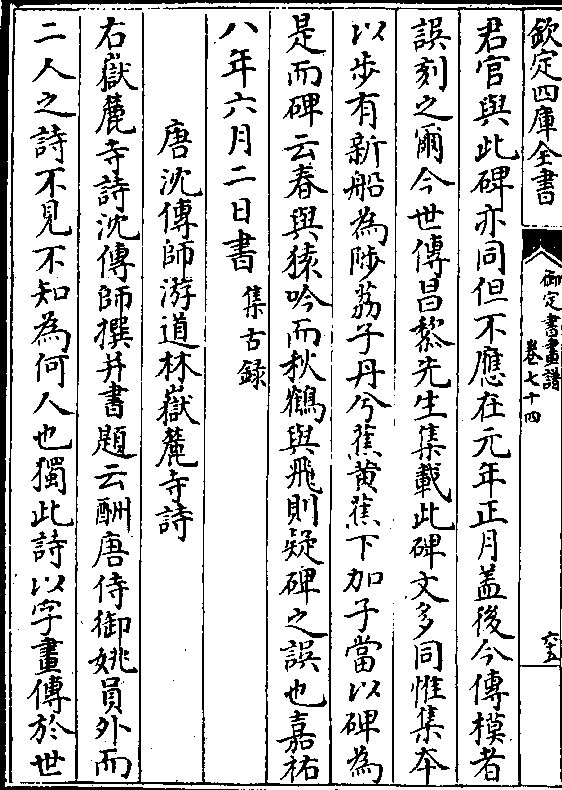 欽定四庫全書
御定書畫譜
卷七十四
六五
君官與此碑亦同但不應在元年正月盖後今傳模者
誤刻之爾今世傳昌黎先生集載此碑文多同惟集本
以步有新船為𨸝荔子丹兮蕉黄蕉下加子當以碑為
是而碑云春與猿吟而秋鶴與飛則疑碑之誤也嘉祐
八年六月二日書 集古録
唐沈傳師游道林嶽麓寺詩
右嶽麓寺詩沈傳師撰并書題云酬唐侍御姚員外而
二人之詩不見不知為何人也獨此詩以字畫傳於世